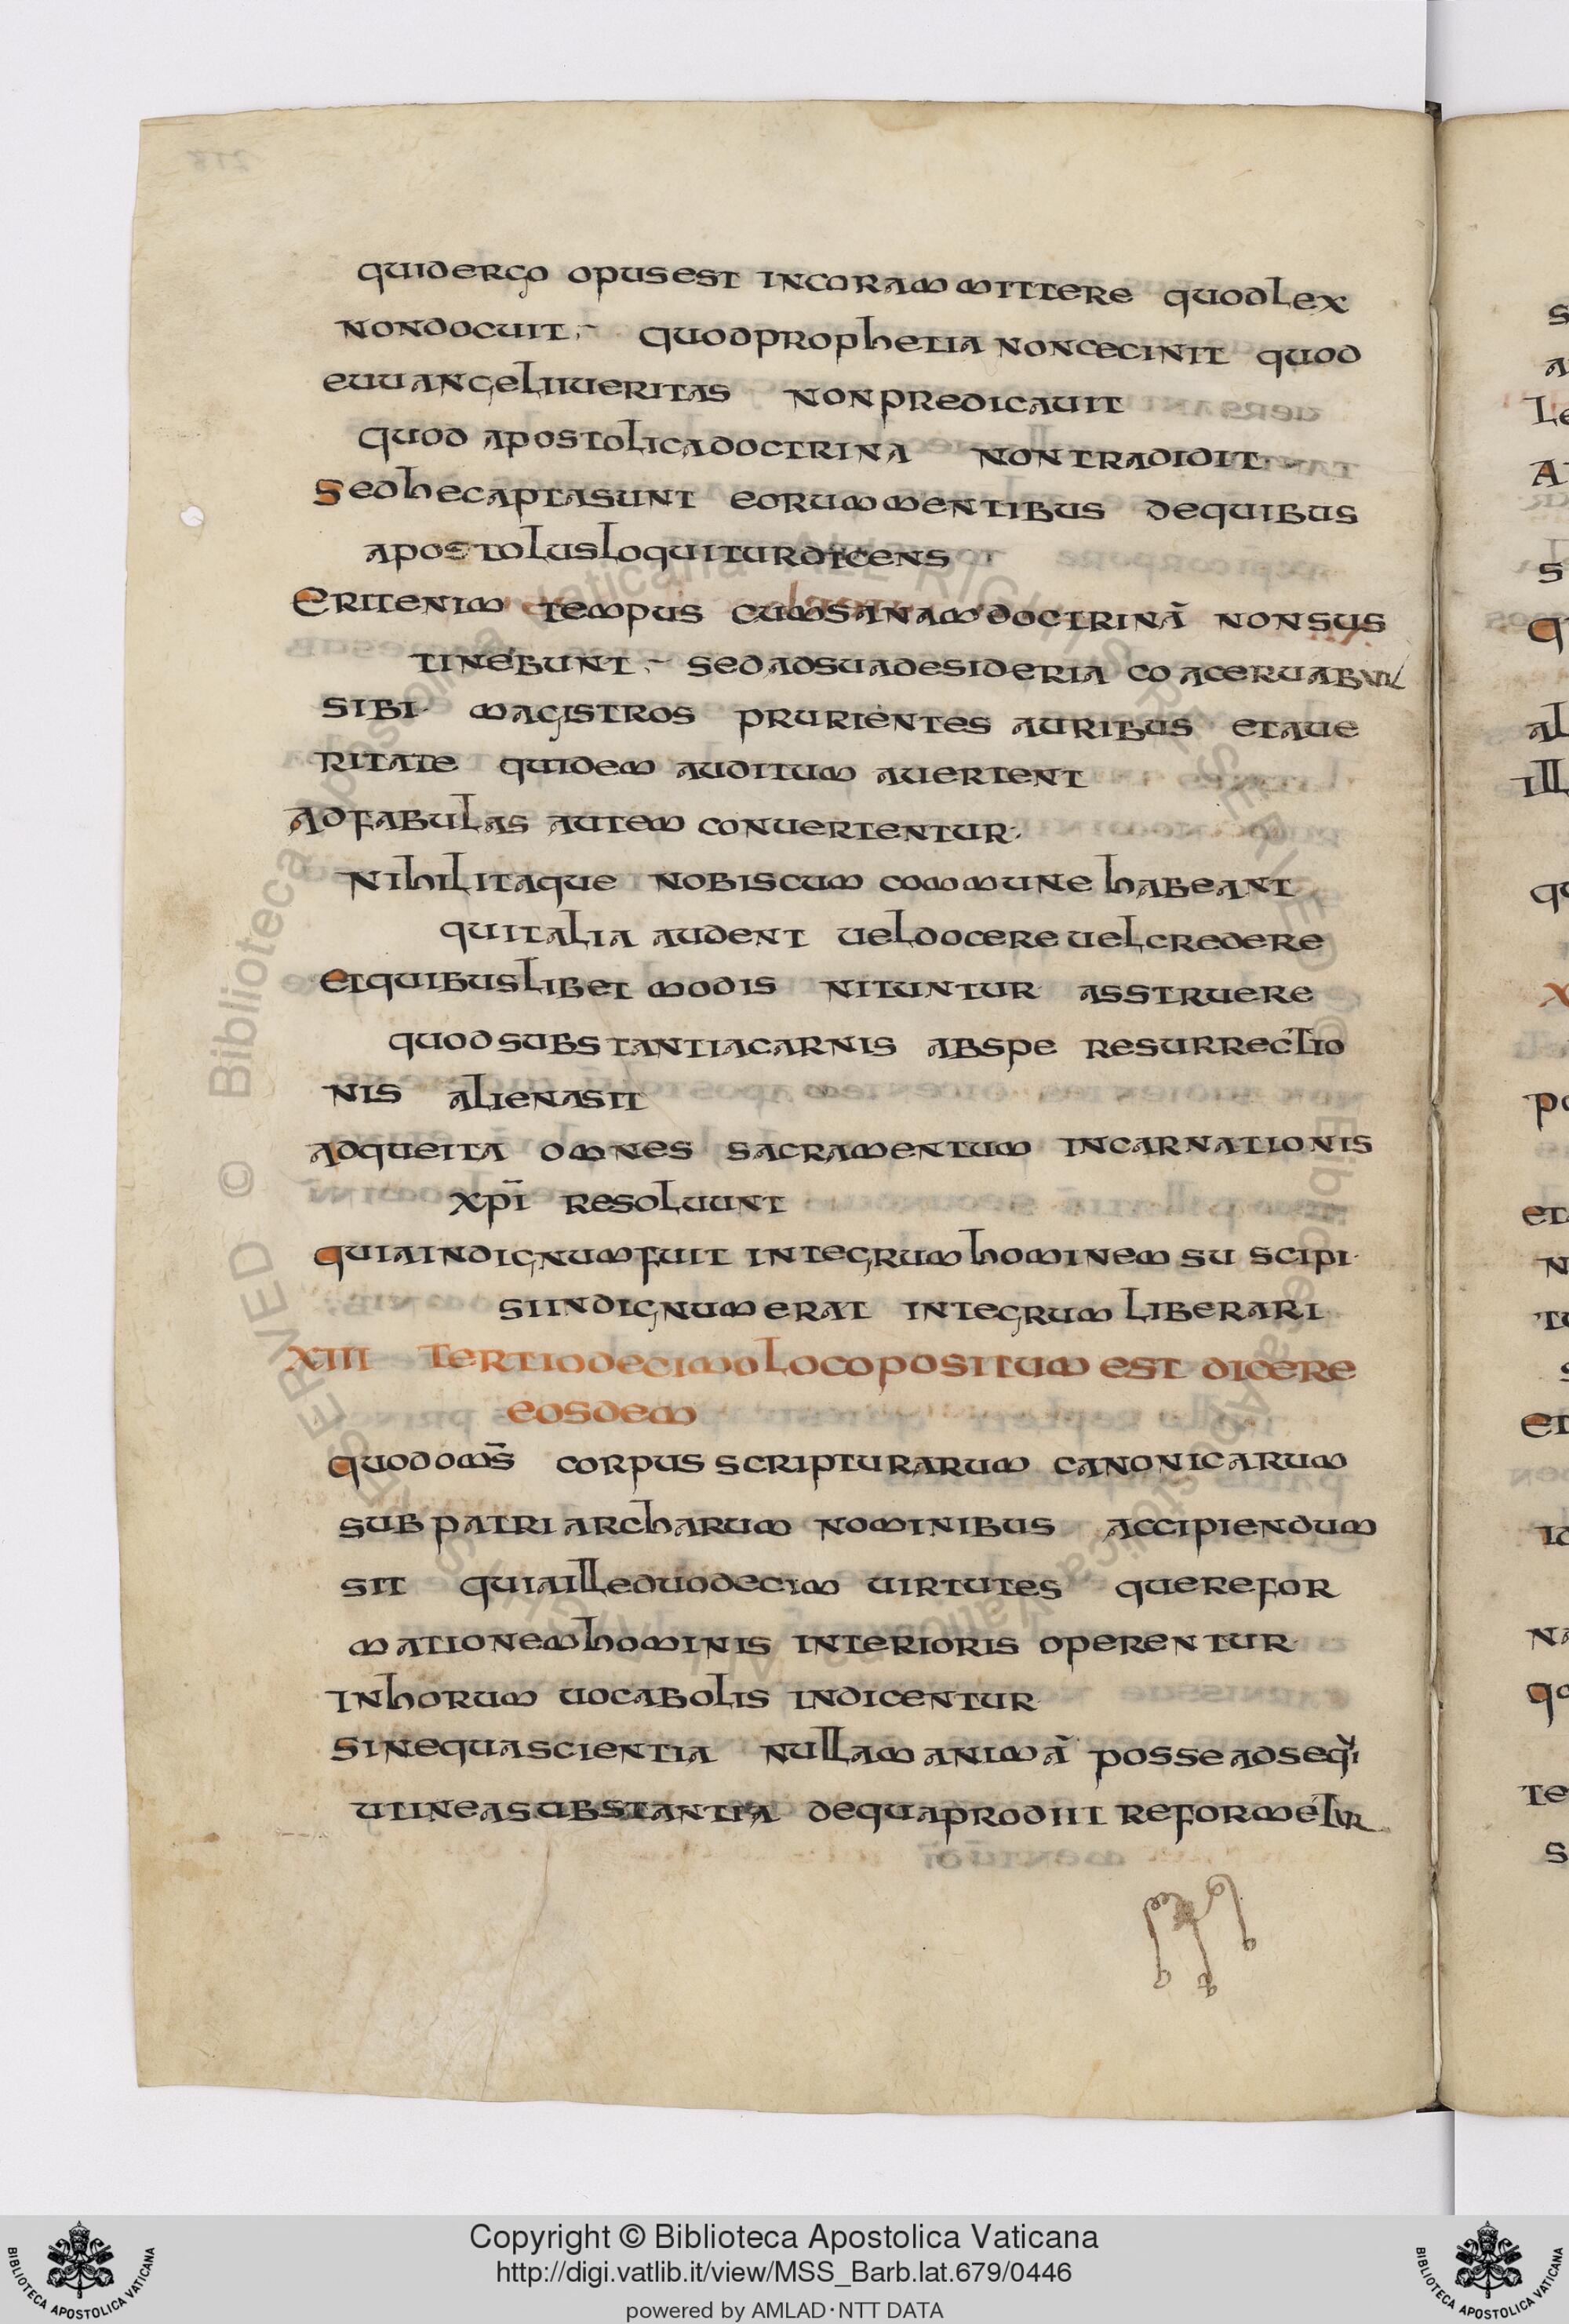 quidergo opusest incoram mittere quodlex
nondocuit;~ quodprophetia noncecinit quod
euuangeliiueritas nonpredicauit
quod apostolicadoctrina nontradidit
Sedhecaptasunt eorummentibus dequibus
apostolusloquiturdicens
Eritenim tempus cumsanamdoctrinā nonsus
tinebunt;~ sedadsuadesideria coaceruabunt
sibi· magistros prurientes auribus etaue
ritate quidem auditum auertent
Adfabulas autem conuertentur·
Nihilitaque nobiscum commune habeant
quitalia audent ueldocere uelcredere
Etquibuslibet modis nituntur asstruere
quodsubstantiacarnis abspe resurrectio
nis alienasit
adqueita omnes sacramentum incarnationis
xpī resoluunt
quiaindignumfuit integrumhominem suscipi·
siindignumerat integrum liberari
XIII Tertiodecimolocopositum est dicere
eosdem
quodom̄s corpus scripturarum canonicarum
sub patriarcharum nominibus accipiendum
sit quiailleduodecim uirtutes querefor
mationemhominis interioris operentur
inhorum uocabolis indicentur
Sinequascientia nullam animā posseadsequi
utineasubstantia dequaprodiit reformetur
Copyright © Biblioteca Apostolica Vaticana
http://digi.vatlib.it/view/MSS_Barb.lat.679/0446
powered by AMLAD·NTT DATA